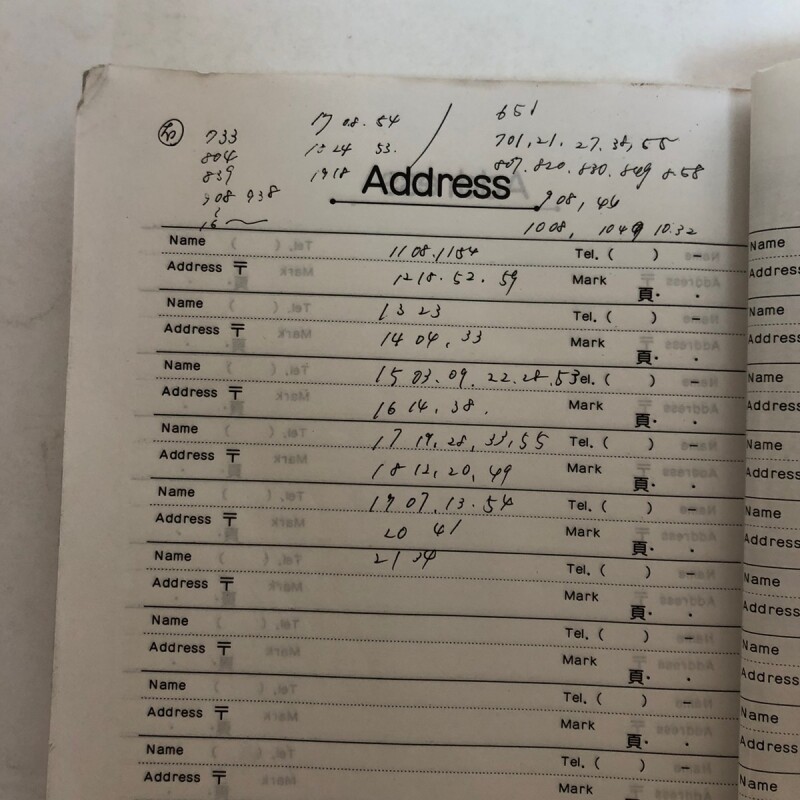 733
804
839
908 938
17 08. 54
1918
651
701, 21, 27, 38, 55
807. 820. 830. 849 858
Address
908, 44
1008, 1049 10.32
Name 1108. 1154 Tel. ( ) -
Address 〒 1218. 52. 59 Mark 頁· ·
Name 1323 Tel. ( ) -
Address 〒 1404, 33 Mark 頁· ·
Name 15 03. 09. 22. 28. 53 Tel. ( ) -
Address 〒 1614, 38. Mark 頁· ·
Name 17 19, 28, 33, 55 Tel. ( ) -
Address 〒 1812, 20, 49 Mark 頁· ·
Name 1907. 13. 54 Tel. ( ) -
Address 〒 20 41 Mark 頁· ·
Name 21 34 Tel. ( ) -
Address 〒 Mark 頁· ·
Name Tel. ( ) -
Address 〒 Mark 頁· ·
Name Tel. ( ) -
Address 〒 Mark 頁· ·
Name Tel. ( ) -
Address 〒 Mark
Name
Address
Name
Address
Name
Address
Name
Address
Name
Address
Name
Address
Name
Address
Name
Address
Name